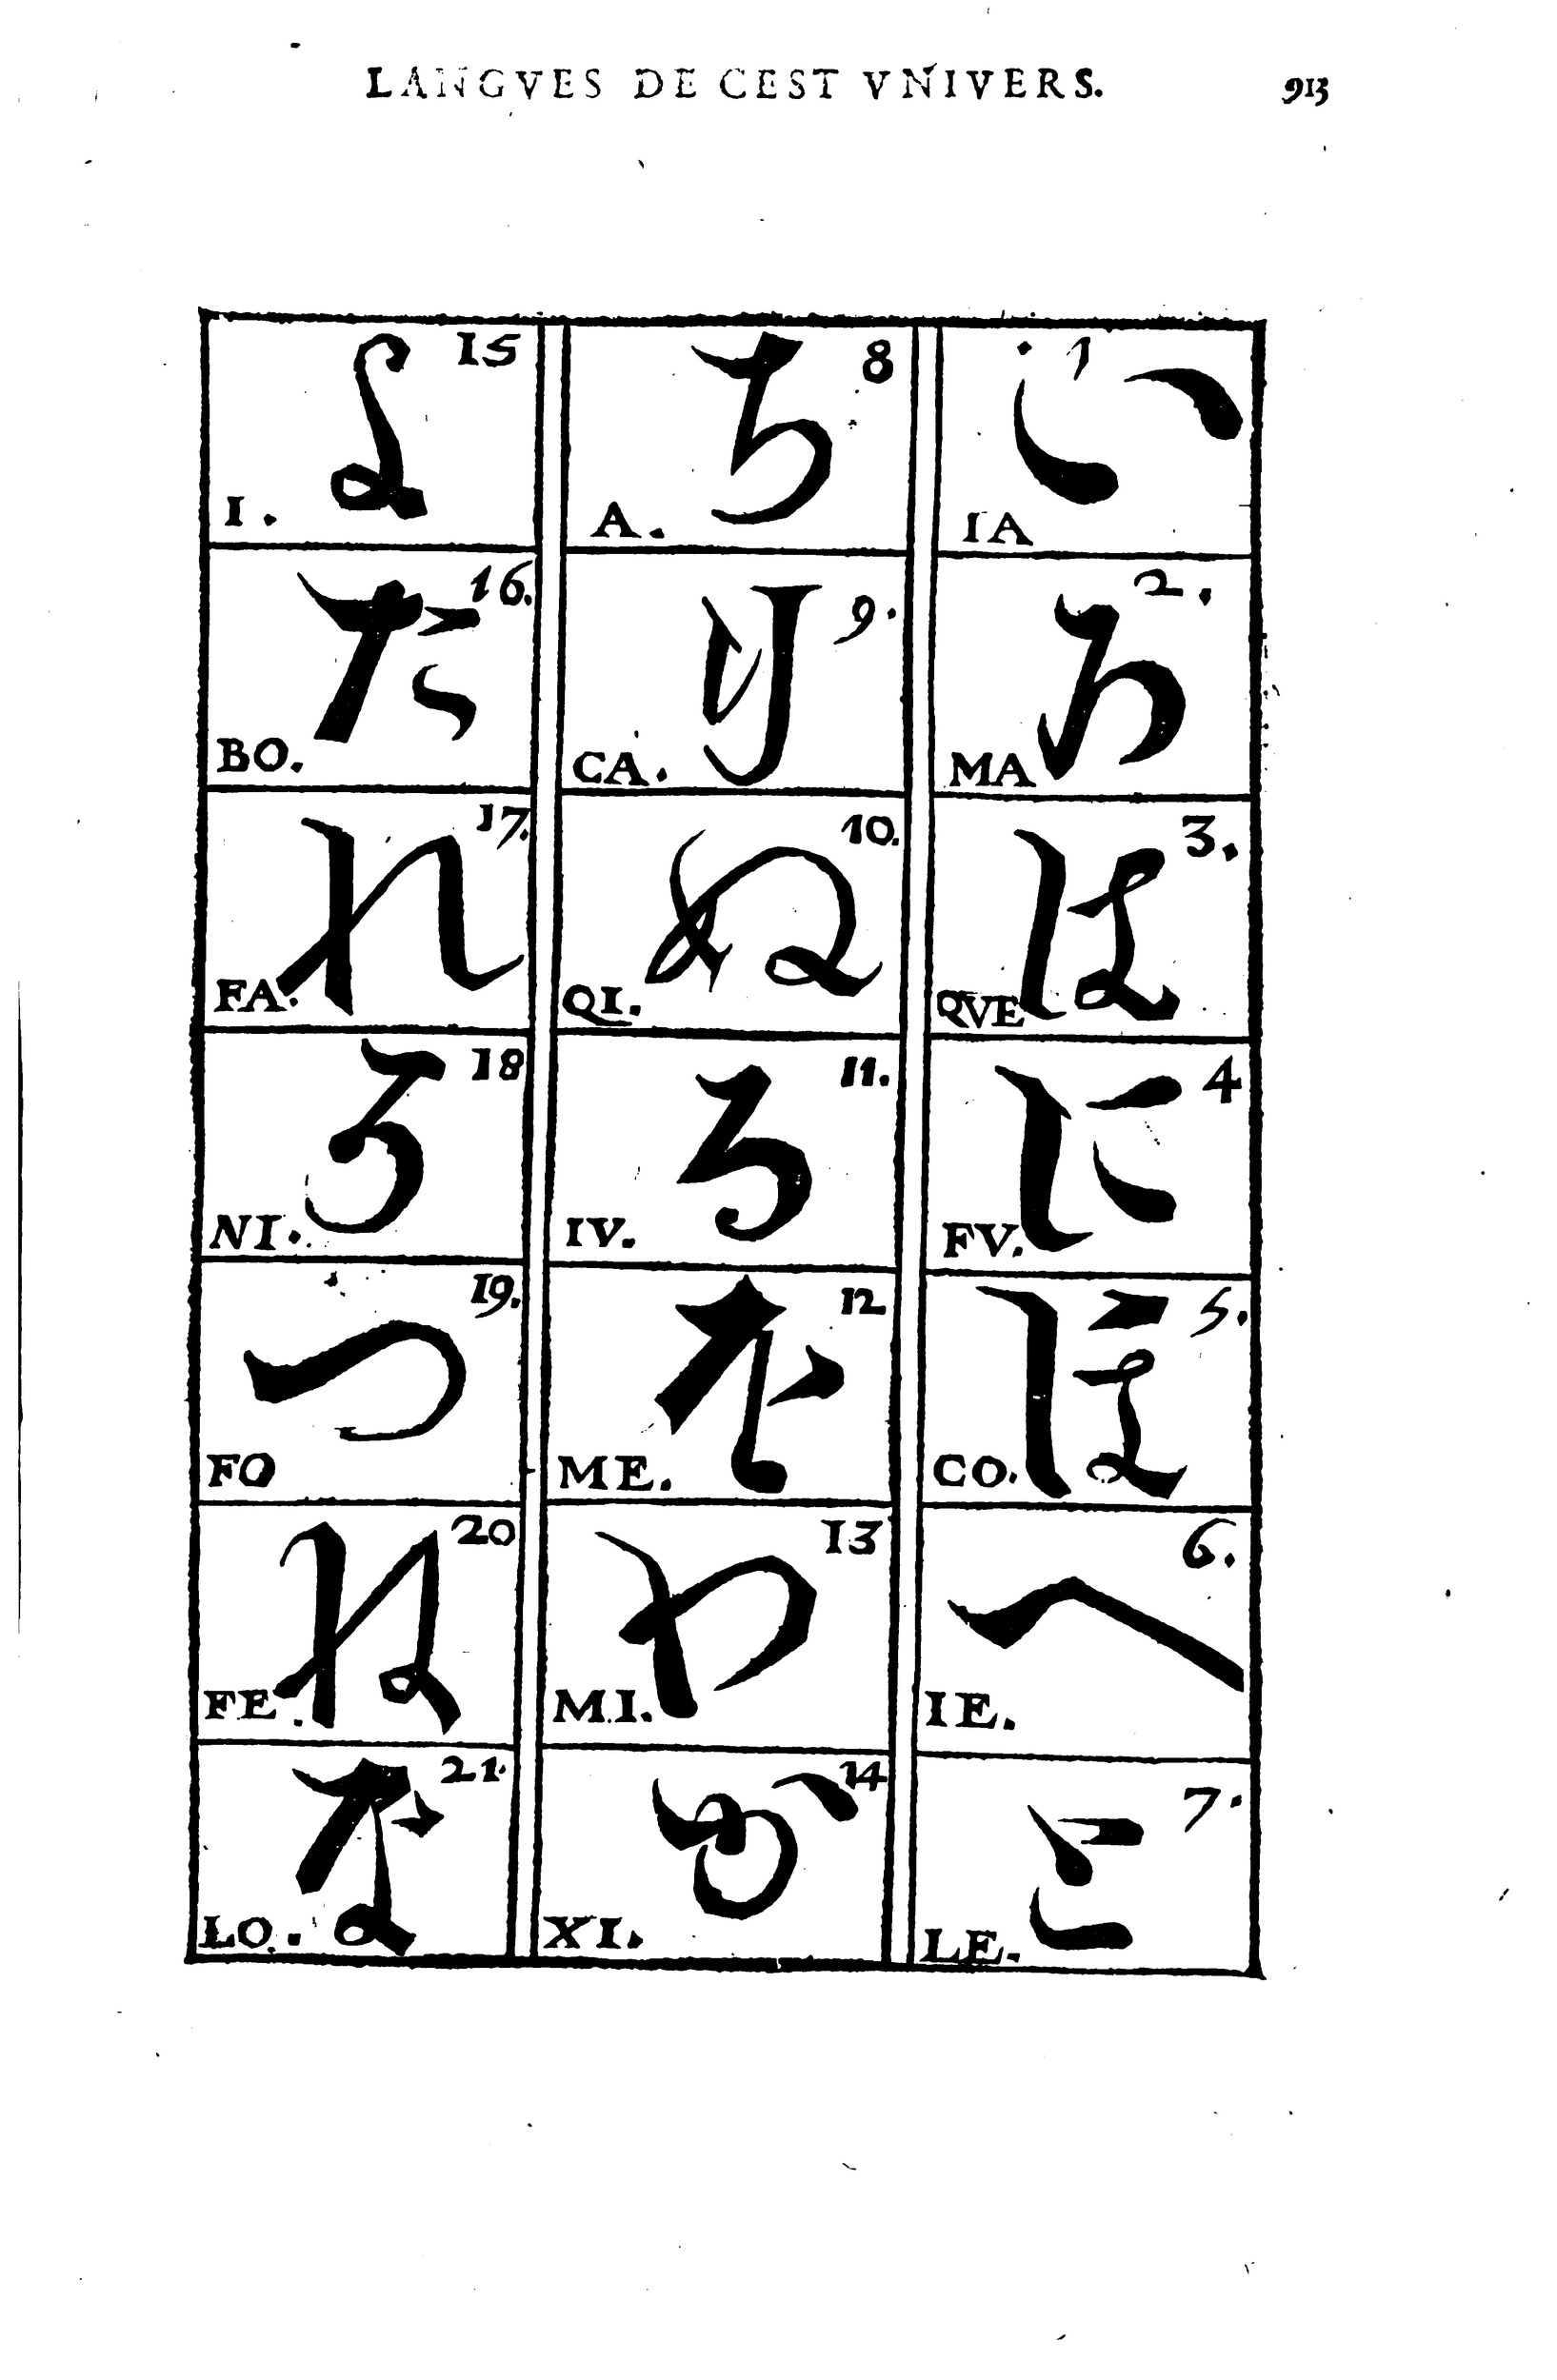 LANGVES DE CEST VNIVERS. 913
1 い IA
2. ろ MA
3. は QVE
4 に FV.
5. ほ CO.
6. へ IE.
7. と LE.
8 ち A.
9. り CA.
10. ぬ QI.
11. る IV.
12 を ME.
13 わ MI.
14 か XI.
15 よ I.
16. た BO.
17. れ FA.
18 そ NI.
19. つ FO
20 ね FE.
21. な LO.